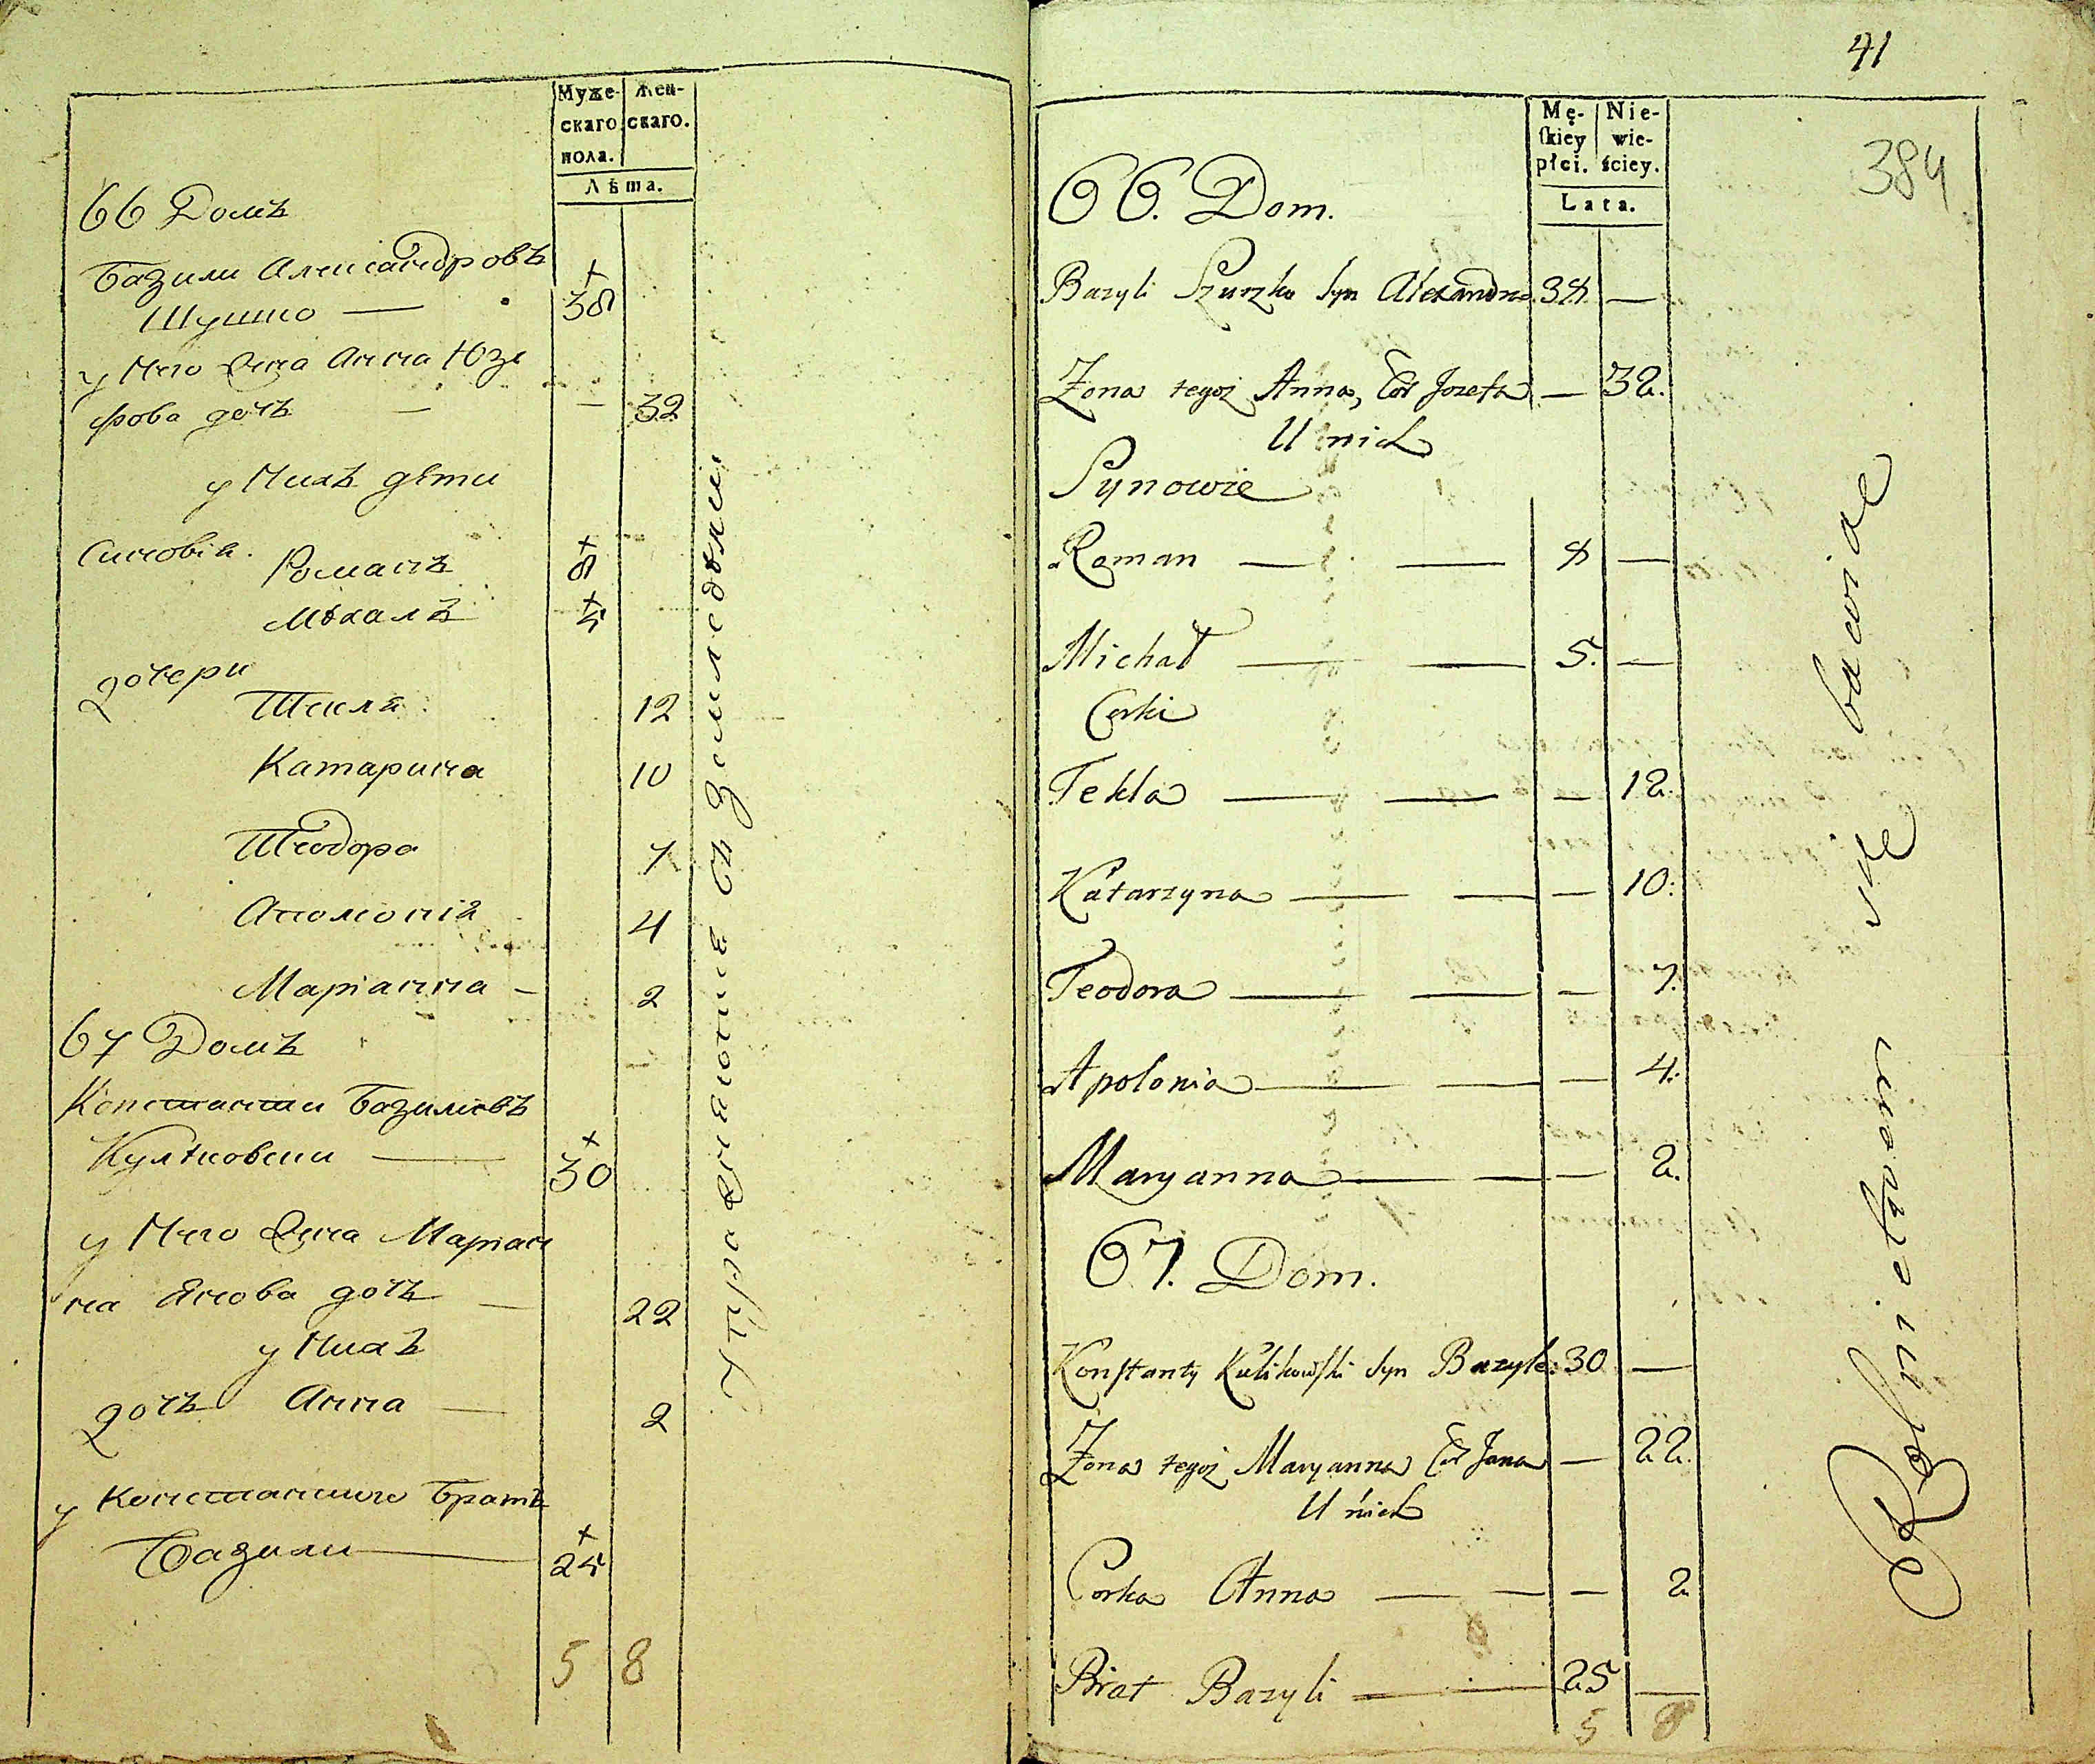 Муже-
скаго
пола.
Жен-
скаго.
Лѣта.
66 Домъ
Базили Александровъ
Шушко —
+
38
у Него Жена Анна Юзе
фова дочь — — 32
у Нихъ дѣти
Синовіа. Романъ
+
8
Мѣхалъ
+
5
Дочери
Текля 12
Катарина 10
Теодора 7
Аполонія 4
Маріанна — 2
67 Домъ
Константи Базилювъ
Куликовски —
+
30
у Него Жена Мариан
на Янова дочь — 22
у Нихъ
Дочь Анна — 2
у Константого Братъ
Базили —
+
25
5 8
Упражняются въ Земледѣлии
41
384
Mę-
skiey
płci.
Nie-
wie-
ściey.
Lata.
66. Dom.
Bazyli Szuszko Syn Alexandra 38. —
Zona tegoż Anna, Cór Jozefa — 32.
U nich
Synowie
Roman — — 8 —
Michał — — 5. —
Corki
Tekla — — — 12.
Katarzyna — — — 10.
Teodora — — — 7.
Apolonia — — — 4.
Maryanna — — — 2.
67. Dom.
Konstanty Kulikowski Syn Bazyle: 30 —
Zona tegoż Maryanna Cór Jana — 22.
U nich
Corka Anna — — — 2
Brat Bazyli — — 25 —
5 8
Rolnictwem się bawiąc